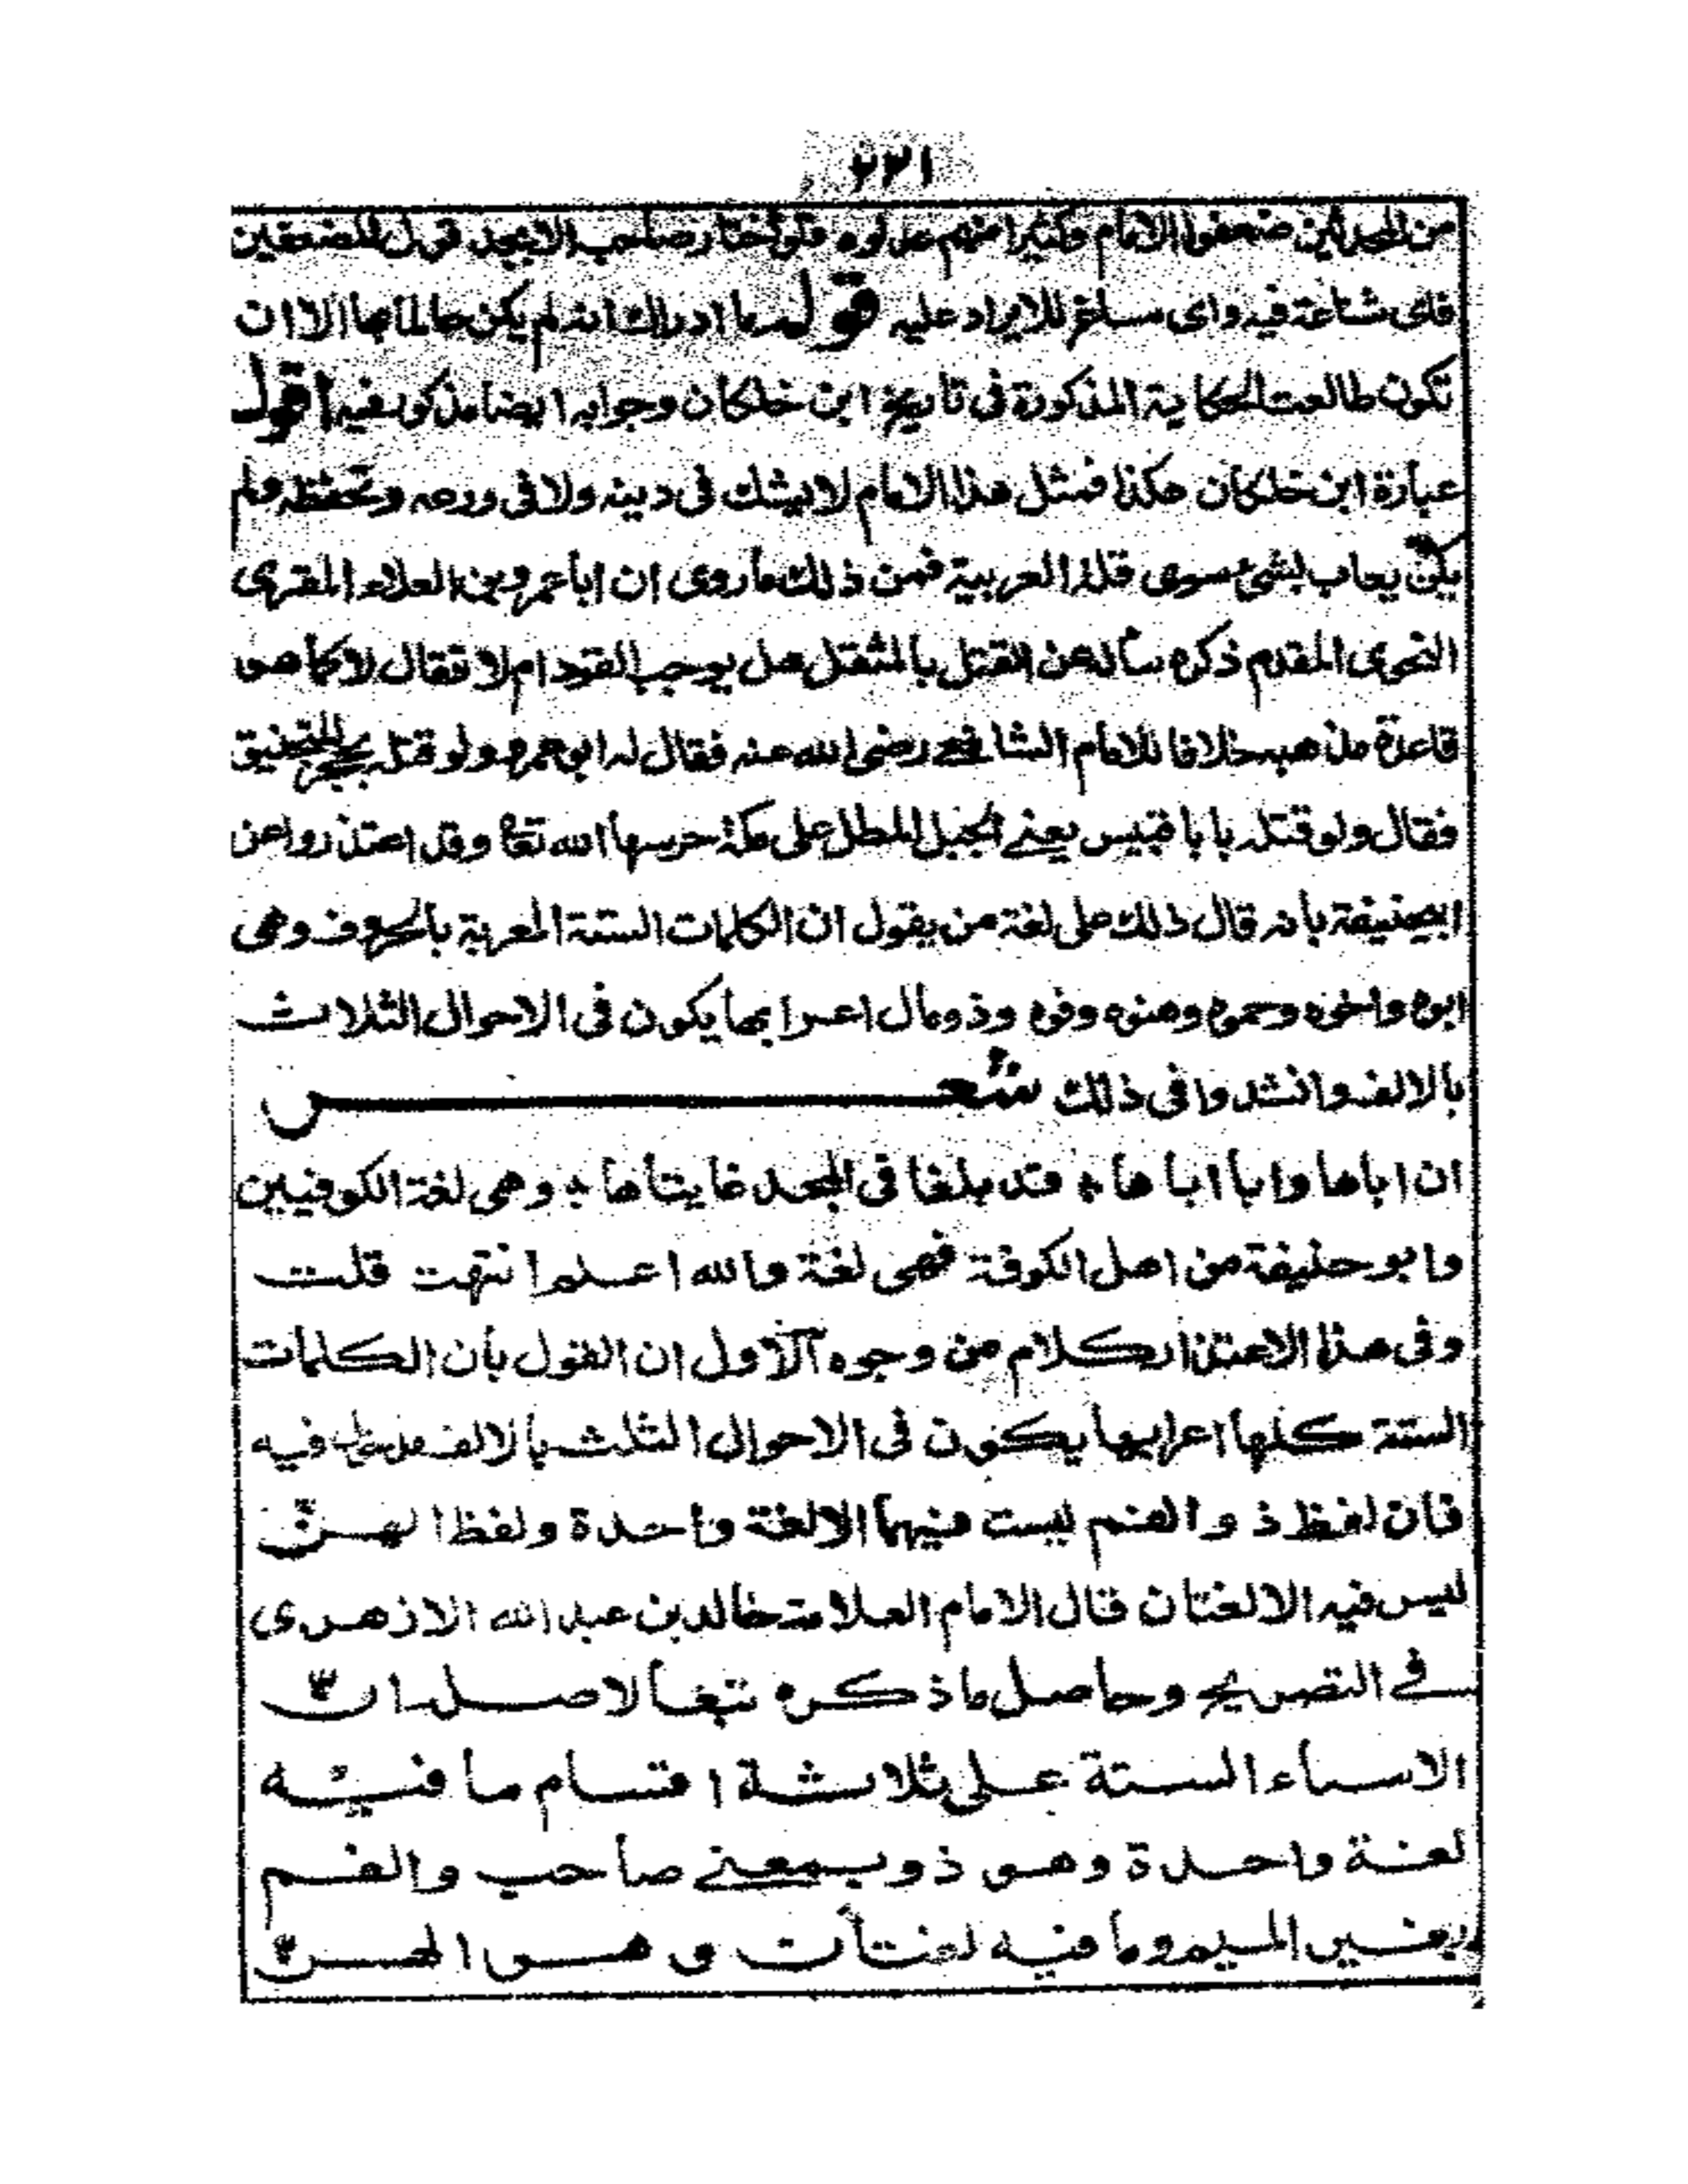 ٢٣١
من المحدثين ضعفوا الامام وكثيرا منهم عدلوه فلو اختار صاحب الابجد قول المضعفين
فاى شناعة فيه واى مساغ للايراد عليه قوله ما ادراك انه لم يكن عالما بها الا ان
تكون طالعت الحكاية المذكورة فى تاريخ ابن خلكان وجوابه ايضا مذكور فيه اقول
عبارة ابن خلكان هكذا فمثل هذا الامام لا يشك فى دينه ولا فى ورعه وتحفظه ولم
يكن يعاب بشئ سوى قلة العربية فمن ذلك ما روى ان ابا عمرو بن العلاء المقرى
النحوى المقدم ذكره سأله عن القتل بالمثقل هل يوجب القود ام لا فقال لا كما هو
قاعدة مذهبه خلافا للامام الشافعى رضى الله عنه فقال له ابو عمرو ولو قتله بحجر المنجنيق
فقال ولو قتله بابا قبيس يعنى الجبل المطل على مكة حرسها الله تعا وقد اعتذروا عن
ابيحنيفة بانه قال ذلك على لغة من يقول ان الكلمات الستة المعربة بالحروف وهى
ابوه واخوه وحموه وهنوه وفوه وذو مال اعرابها يكون فى الاحوال الثلاث
بالالف وانشدوا فى ذلك شعر
ان اباها وابا اباها ٭ قد بلغا فى المجد غايتاها ٭ وهى لغة الكوفيين
وابو حنيفة من اهل الكوفة فهى لغة والله اعلم انتهت قلت
وفى هذا الاعتذار كلام من وجوه الاول ان القول بأن الكلمات
الستة كلها اعرابها يكون فى الاحوال الثلث بالالف فيه
فان لفظ ذو والفم ليست فيهما الا لغة واحدة ولفظ الهن
ليس فيه الا لغتان قال الامام العلامة خالد بن عبد الله الازهرى
فى التصريح وحاصل ما ذكره تبعا لاصله ان
الاسماء الستة على ثلاثة اقسام ما فيه
لغة واحدة وهو ذو بمعنى صاحب والفم
بغير الميم وما فيه لغتان و هو الهن